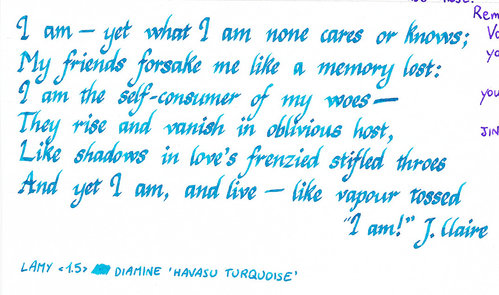 I am – yet what I am none cares or knows;
My friends forsake me like a memory lost:
I am the self-consumer of my woes –
They rise and vanish in oblivious host,
Like shadows in love's frenzied stifled throes
And yet I am, and live – like vapour tossed
"I am!" J. Claire
LAMY <1.5> DIAMINE 'HAVASU TURQUOISE'
Rem
yo
you
JIN